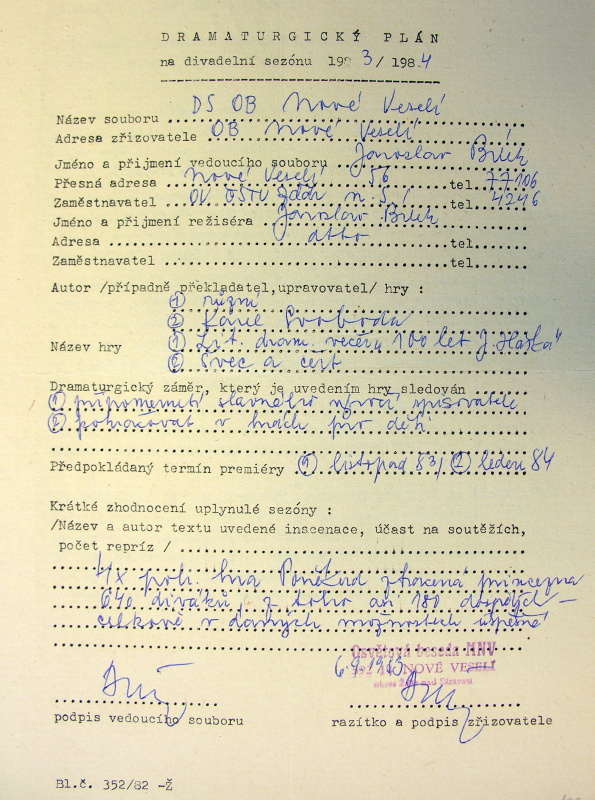 DRAMATURGICKÝ PLÁN
na divadelní sezónu 1983/1984
Název souboru DS OB Nové Veselí
Adresa zřizovatele OB Nové Veselí
Jméno a přijmení vedoucího souboru Jaroslav Bílek
Přesná adresa Nové Veselí 56 tel. 77106
Zaměstnavatel OV ČSTV Žďár n. S. tel. 4246
Jméno a přijmení režiséra Jaroslav Bílek
Adresa dtto tel
Zaměstnavatel tel
Autor /případně překladatel,upravovatel/ hry :
① různí
② Karel Svoboda
Název hry ① Lit. dram. večer „100 let J. Haška"
② Švec a čert
Dramaturgický záměr, který je uvedením hry sledován
① připomenutí slavného výročí spisovatele
② pokračovat v hrách pro děti
Předpokládaný termín premiéry ① listopad 83, ② leden 84
Krátké zhodnocení uplynulé sezóny :
/Název a autor textu uvedené inscenace, účast na soutěžích,
počet repríz /
4x poh. hra Poněkud ztracená princezna
640 diváků, z toho asi 180 dospělých –
celkově v daných možnostech úspěšné
Osvětová beseda MNV
6.9.1983
NOVÉ VESELÍ
okres Žďár nad Sázavou
podpis vedoucího souboru razítko a podpis zřizovatele
Bl.č. 352/82 -Ž